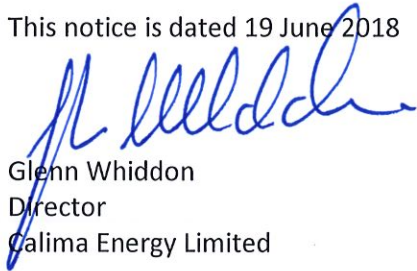 This notice is dated 19 June 2018
Glenn Whiddon
Director
Calima Energy Limited